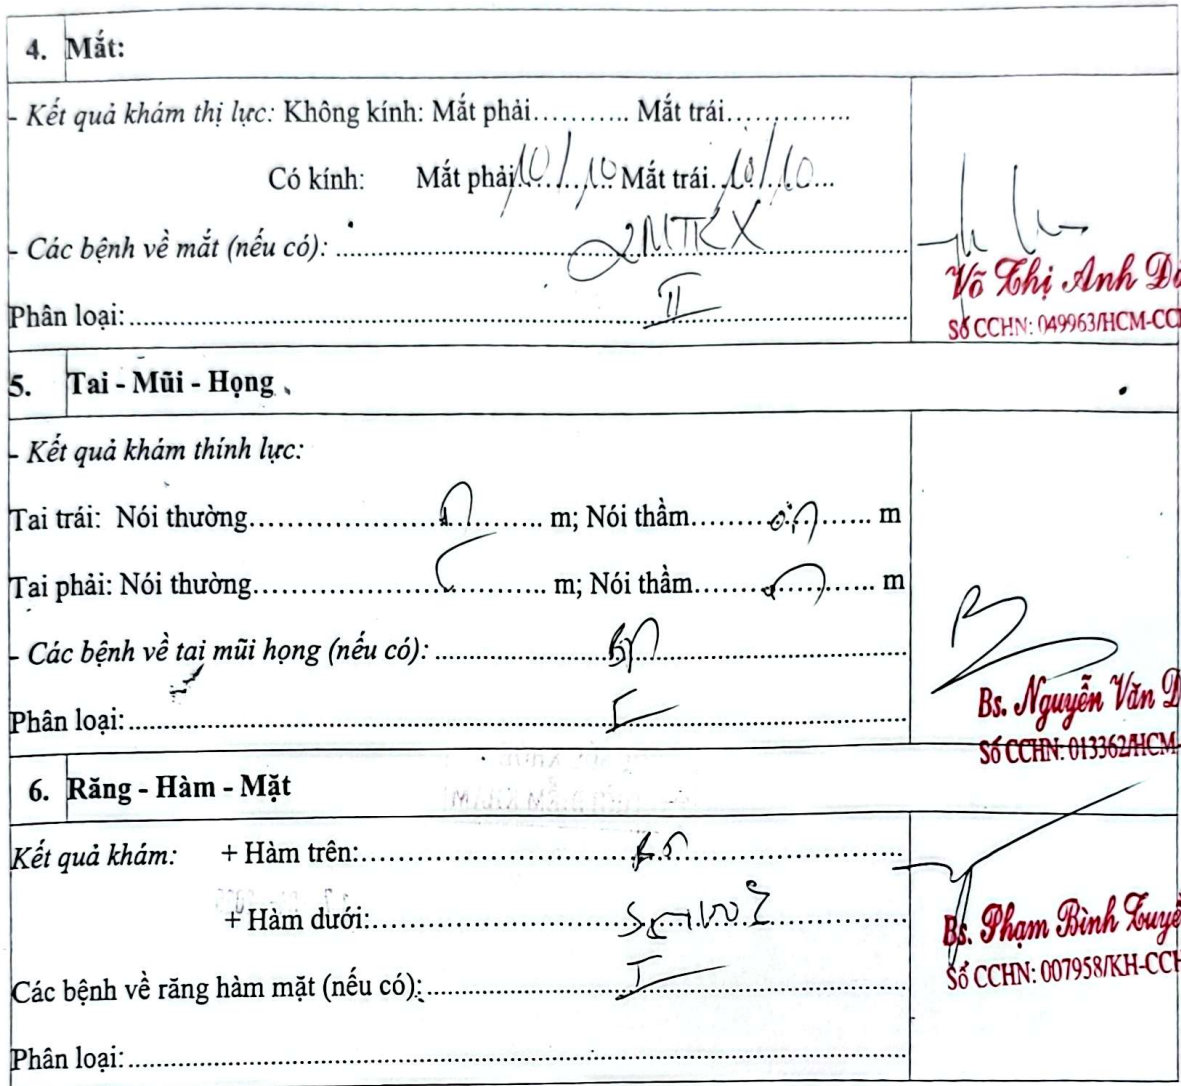 4. Mắt:
- Kết quả khám thị lực: Không kính: Mắt phải........... Mắt trái..............
Có kính: Mắt phải 10/10 Mắt trái 10/10
- Các bệnh về mắt (nếu có): 2MTKX
Phân loại: II
Võ Thị Anh
Số CCHN: 049963/HCM-CC
5. Tai - Mũi - Họng
- Kết quả khám thính lực:
Tai trái: Nói thường m; Nói thầm m
Tai phải: Nói thường m; Nói thầm m
- Các bệnh về tai mũi họng (nếu có):
Phân loại: I
Bs. Nguyễn Văn
Số CCHN: 013362/HCM-
6. Răng - Hàm - Mặt
Kết quả khám: + Hàm trên:
+ Hàm dưới:
Các bệnh về răng hàm mặt (nếu có): I
Phân loại:
Bs. Phạm Bình
Số CCHN: 007958/KH-CC